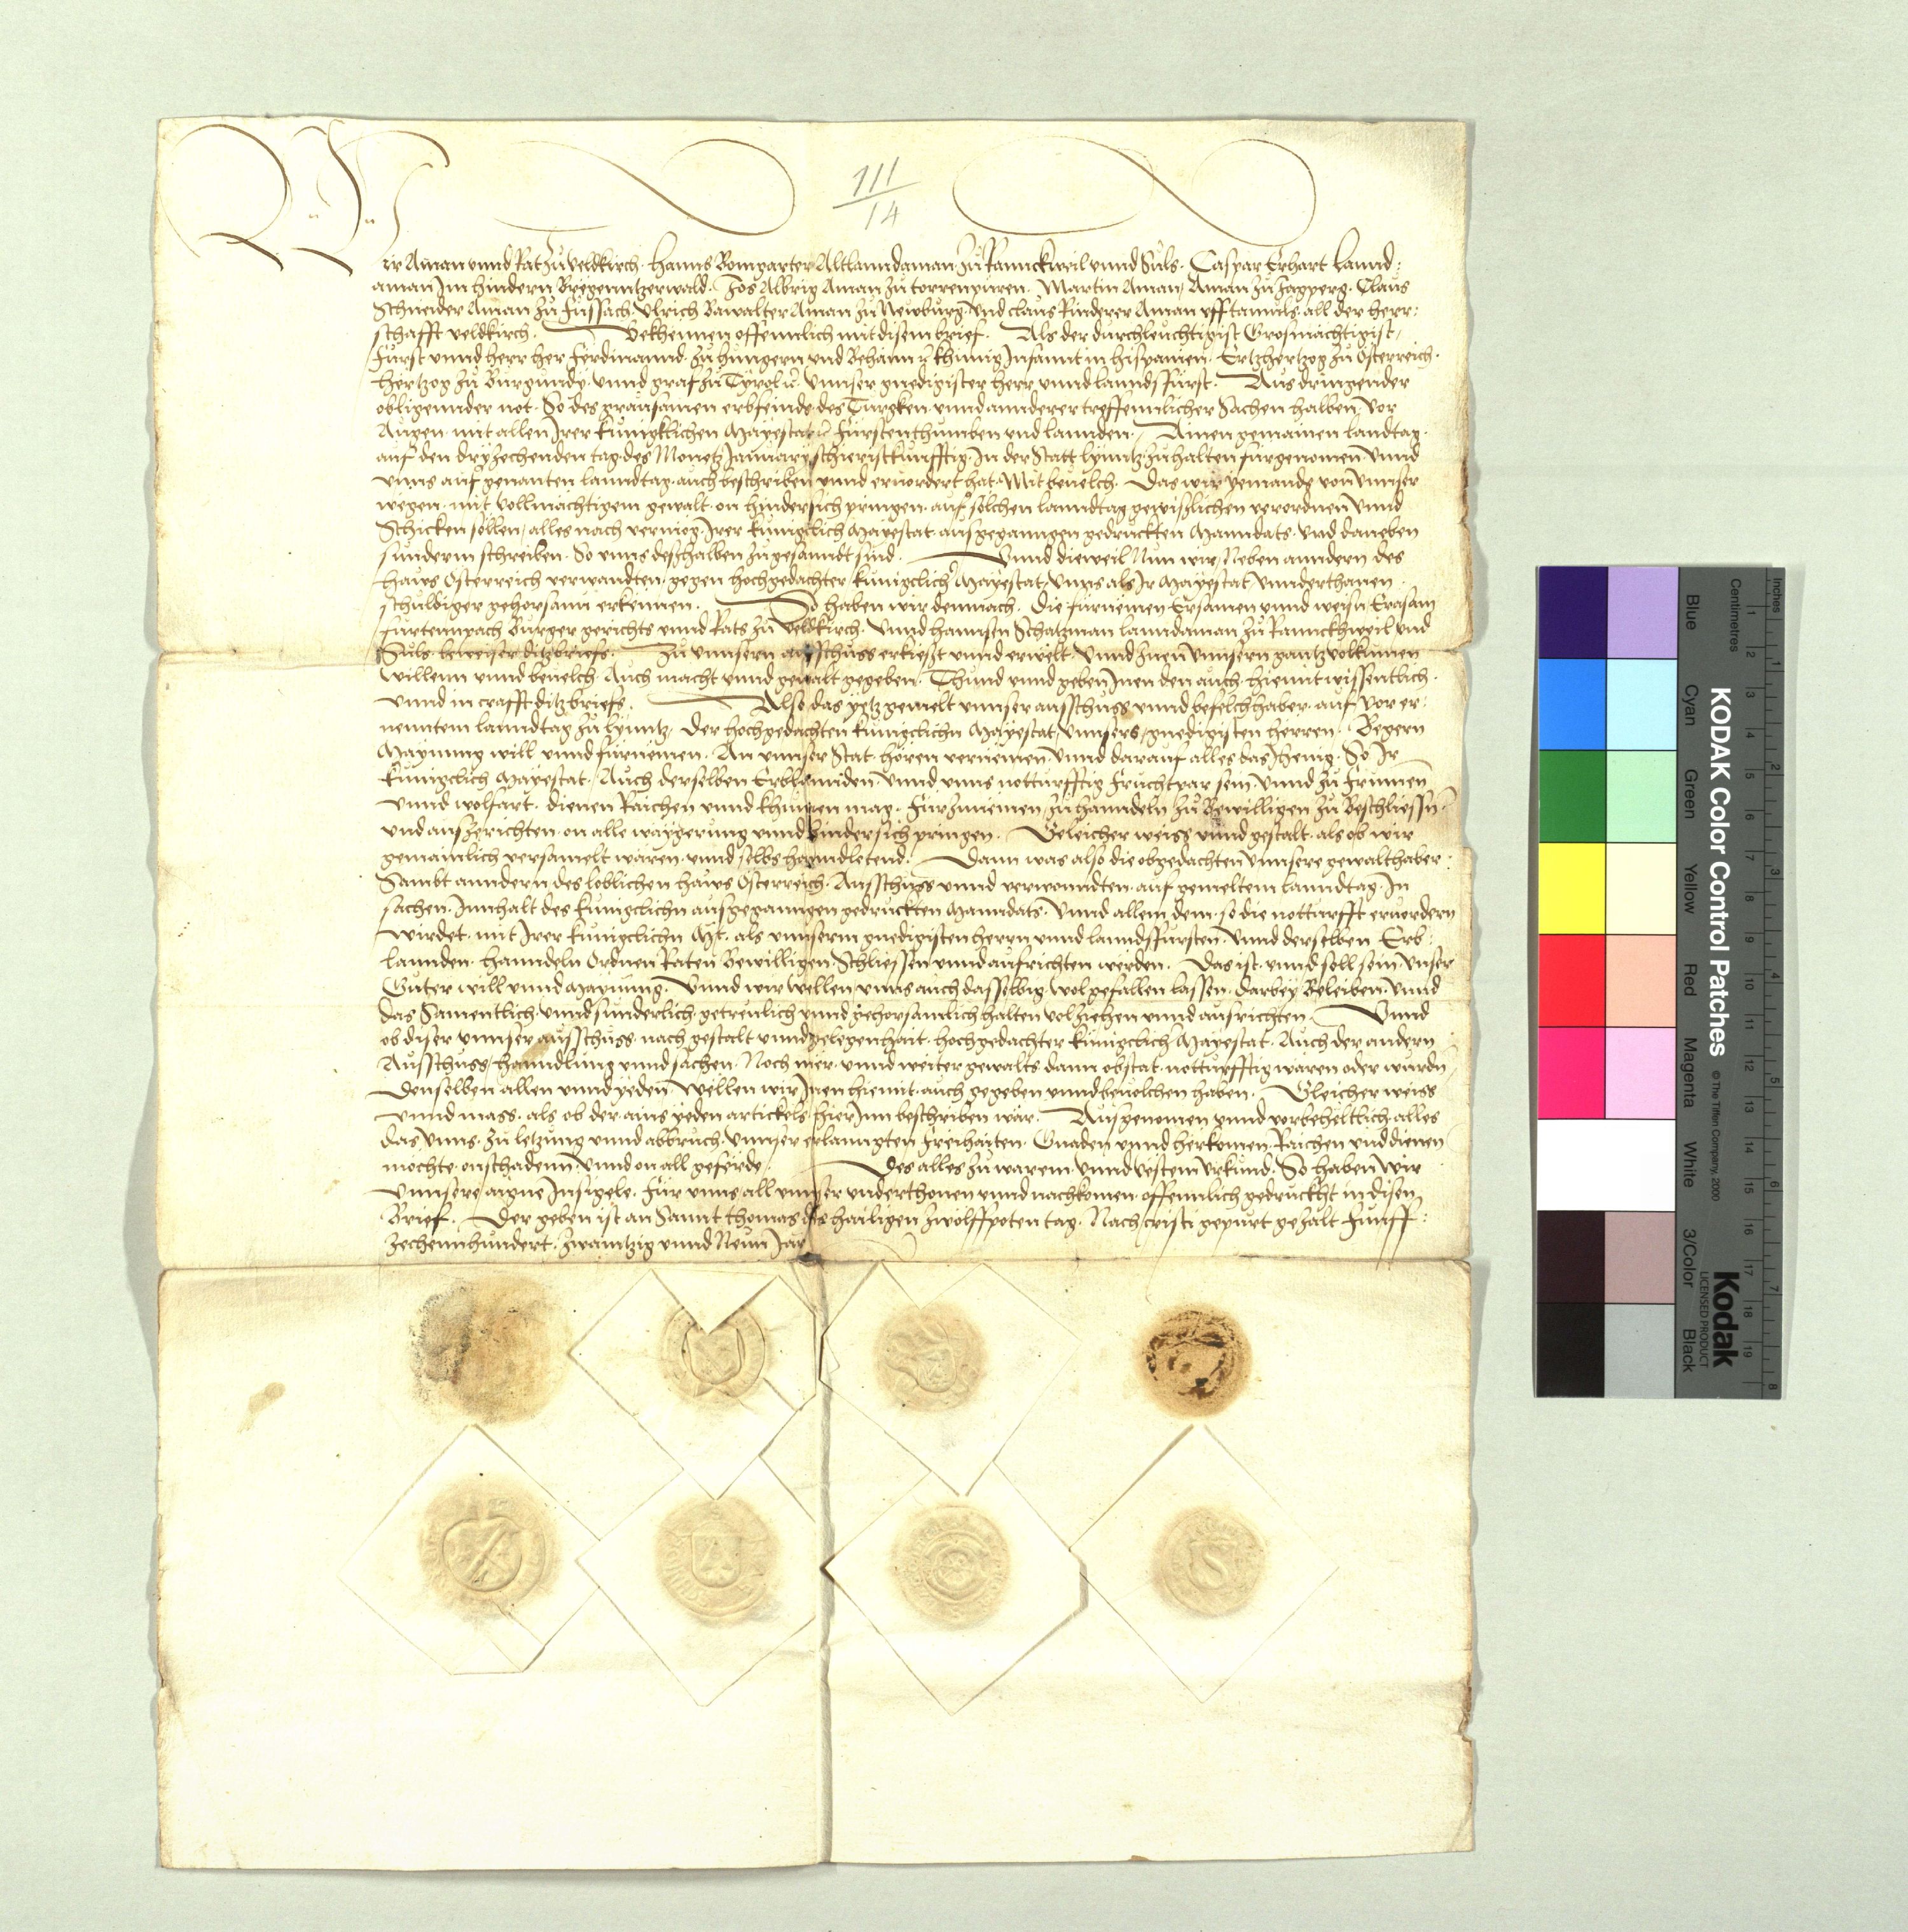 111
14
Wir Aman vnnd Rat zů Veldkirch. Hanns Bomgarter Altlanndaman zů Rannckweil vnnd Sůls. Caspar Erhart Lannd:
aman Im hindern Bregenntzerwald. Jos Albrig Aman zů torrenpüren. Martin Aman, Aman zů Jagperg. Claus
Schneider Aman zů Fůssach. Ulrich Bawalter Aman zů Newburg vnd claus Rinderer Aman vff tamüls. all der herr:
schafft veldkirch. Bekhennen offennlich mit disem brief. Als der durchleuchtigist Grosmächtigist,
Fürst vnnd herr her Ferdinannd. zů hungern vnd Behäim &c khunig Infannt in hispanien. Ertzhertzog zů Österreich.
Hertzog zů Burgundy. vnnd graf zů Tyrol &c. vnnser gnedigister herr vnnd lannds Fürst. Aus dringender
obligennder not. So des graüsamen erbfeinds des Türgken vnnd annderer treffennlicher Sachen halben, vor
Augen. mit allen Irer künigklichen Mayestat &c Fürstenthumben vnd lannden. Ainen gemainen landtag.
auf den dryzechenden tag des Monetz Januarÿ schieristkünfftig. In der Statt lynntz zůhalten fürgenomen. vnnd
vnns auf genanten lanndtag. auch beschriben vnnd eruordert hat. Mit beuelch. Das wir yemands von vnnser
wegen. mit vollmächtigem gewalt. on hindersich pringen. auf sölchen lanndtag gewißlichen verordnen vnnd
Schicken söllen, alles nach vermög. Irer künigclich Mayestat. ausgeganngen gedruckten Manndats. vnd daneben
sunderm schreiben. So vnns deßhalben zůgesanndt sind. Vnnd dieweil Nun wir, Neben anndern des
Haws Osterreich verwandten. gegen hochgedachter künigclicher Mayestat, vnns als Ir Mayestat, vnnderthanen.
schuldiger gehorsam erkennen. So haben wir demnach. Die fürnemen Ersamen vnnd weisn Erasam
Furtennpach Burger gerichts vnnd Rats zů Veldkirch. vnnd hannsen Schatzman lanndaman zů Rannckhweil vnd
Sůls. beweiser ditzbriefs. Zů vnnsern ausschuss erkießt vnnd erwelt. vnnd Inen vnnsern gantz volkumen
Willenn vnnd beuelch. Auch macht vnnd gewalt gegeben. Thund vnnd geben Inen den auch. hiemit wissentlich.
vnnd in crafft ditzbriefs. Also das yetz gemelt vnnser ausschuss vnnd befelchhaber. auf vor er:
nenntem lanndtag zů lynntz. Der hochgedachten künigclichn Mayestat, vnnsers, gnedigisten herren. Begern
Maynung will vnnd fürnemen. An vnnser Stat. hören vernemen. vnnd darauf alles das Ihenig. So Ir
künigclich Mayestat. Auch derselben Erblannden. vnnd vnns notturfftig Fruchtpar sein. vnnd zů Frummen
vnnd wolfart. dienen Raichen vnnd khumen mag. Fürzunemen, zů hanndeln zů Bewilligen zů Beschliessn.
vnd auszerichten. on alle waÿgerung vnnd hindersich pringen. Geleicher weiss vnnd gestalt. als ob wir
gemainlich versamelt wären. vnnd selbs hanndletend. Dann was also die obgedachten vnnsere gewalthaber.
Sambt anndern des loblichen haws Österreich. Ausschuss vnnd verwanndten. auf gemeltem lanndtag. In
sachen. Innhalt des künigclichn ausgeganngen gedruckten Manndats. vnnd allem dem. so die notturfft eruordern
wirdet. mit Irer künigclichn Mt. als vnnserm gnedigisten herrn vnnd lanndsfürsten. vnnd derselben Erb:
lannden. hanndeln Ordnen Raten Bewilligen Schliessen vnnd aufrichten werden. Das ist. vnnd soll sein vnser
Guter will vnnd Maynung. Vnnd wir wellen vnns auch dasselbig wolgefallen lassen. Darbeÿ Beleiben. vnnd
das Samentlich. vnnd sunderlich. getreulich vnnd gehorsamlich halten volziehen vnnd ausrichten. Vnnd
ob diser vnnser ausschuss. nach gestalt vnnd gelegenhait. hochgedachter künigclich Mayestat. Auch der andern
Ausschuss, hanndlung vnnd sachen. Noch mer. vnnd weiter gewalts dann obstat. notturfftig wären oder wurdn,
Denselben allen vnnd yeden. Wellen wir Inen hiemit. auch gegeben vnnd beuolchen haben. Gleicher weiss
vnnd mass. als ob der ains yeden artickels. hierinn beschriben wär. Ausgenomen vnnd vorbeheltlich. alles
das vnns. zů letzung vnnd abbruch. vnnser erlanngten Freihaiten. Gnaden vnnd herkomen. Raichen vnd dienen
möchte. onschadenn. vnnd on all geferde. Des alles zů warem. vnnd vestem vrkund. So haben wir
vnnsere aigne Insigele. Für vnns all vnnser vnderthonen vnnd nachkomen. offennlich gedruckht in disen
Brief. Der geben ist an Sannt thomas des hailigen zwölffpoten tag. Nach cristi gepurt gezalt Funff:
zechennhundert. zwaintzig vnnd Neun Jar
KODAK Color Control Patches © The Tiffen Company, 2000
Kodak
LICENSED PRODUCT
Blue Cyan Green Yellow Red Magenta White 3/Color Black
Inches 1 2 3 4 5 6 7 8
Centimetres 1 2 3 4 5 6 7 8 9 10 11 12 13 14 15 16 17 18 19